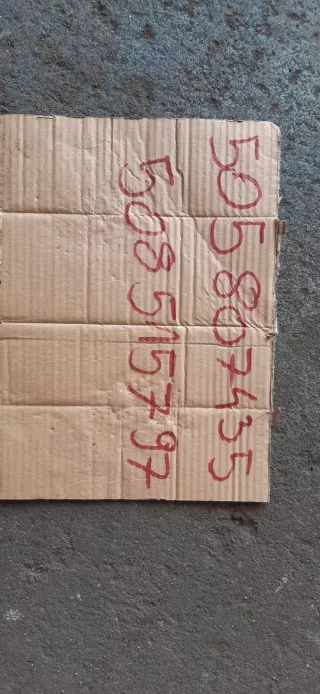 505 807435
508 515797